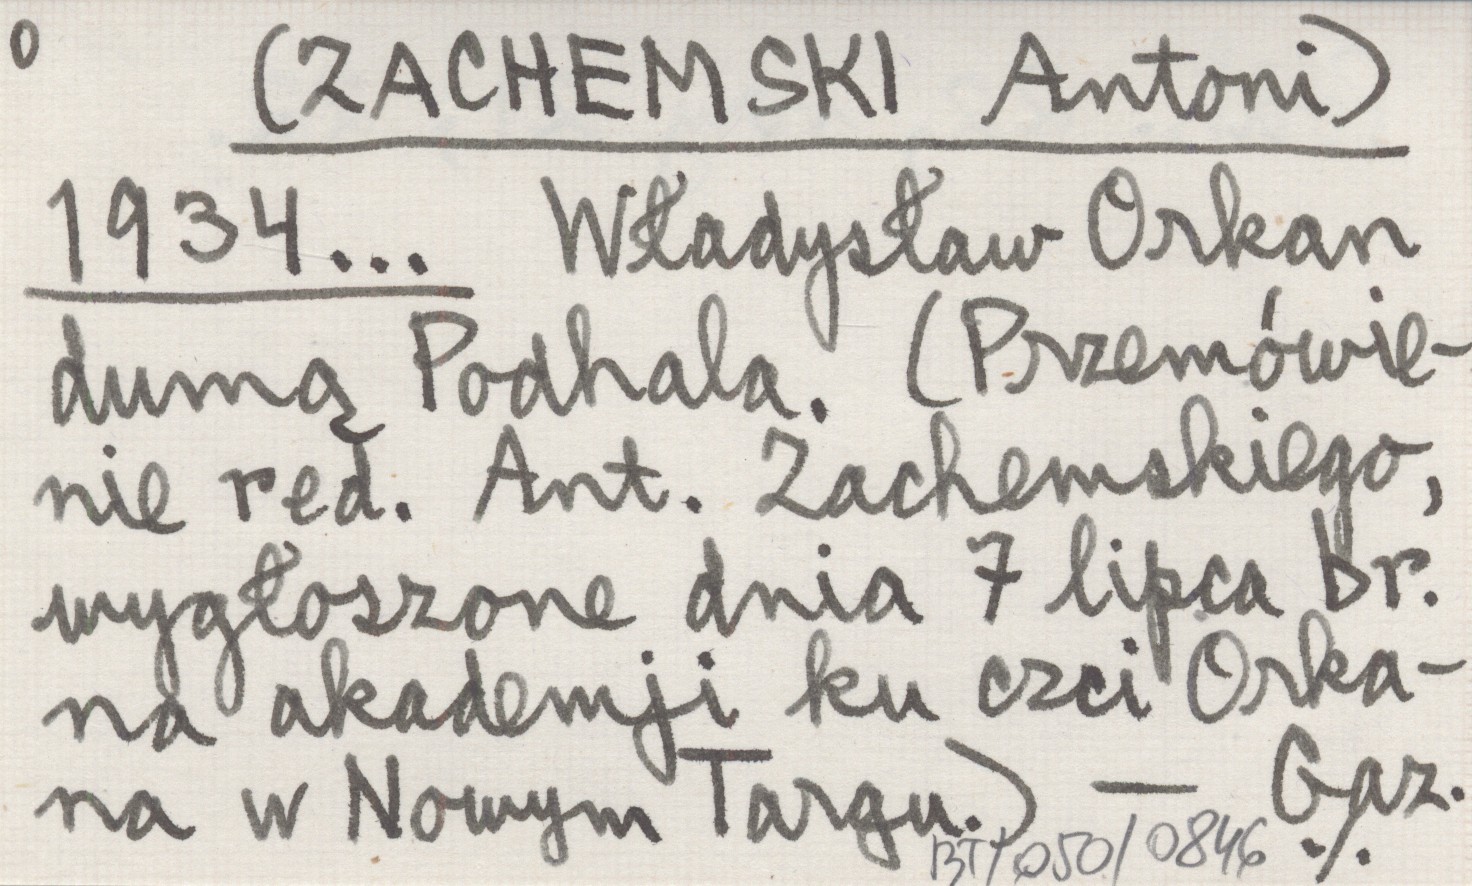 0
(ZACHEMSKI Antoni)
1934... Władysław Orkan
dumą Podhala. (Przemówie-
nie red. Ant. Zachemskiego,
wygłoszone dnia 7 lipca br.
na akademji ku czci Orka-
na w Nowym Targu.) — Gaz.
BT/050/0846 ./.